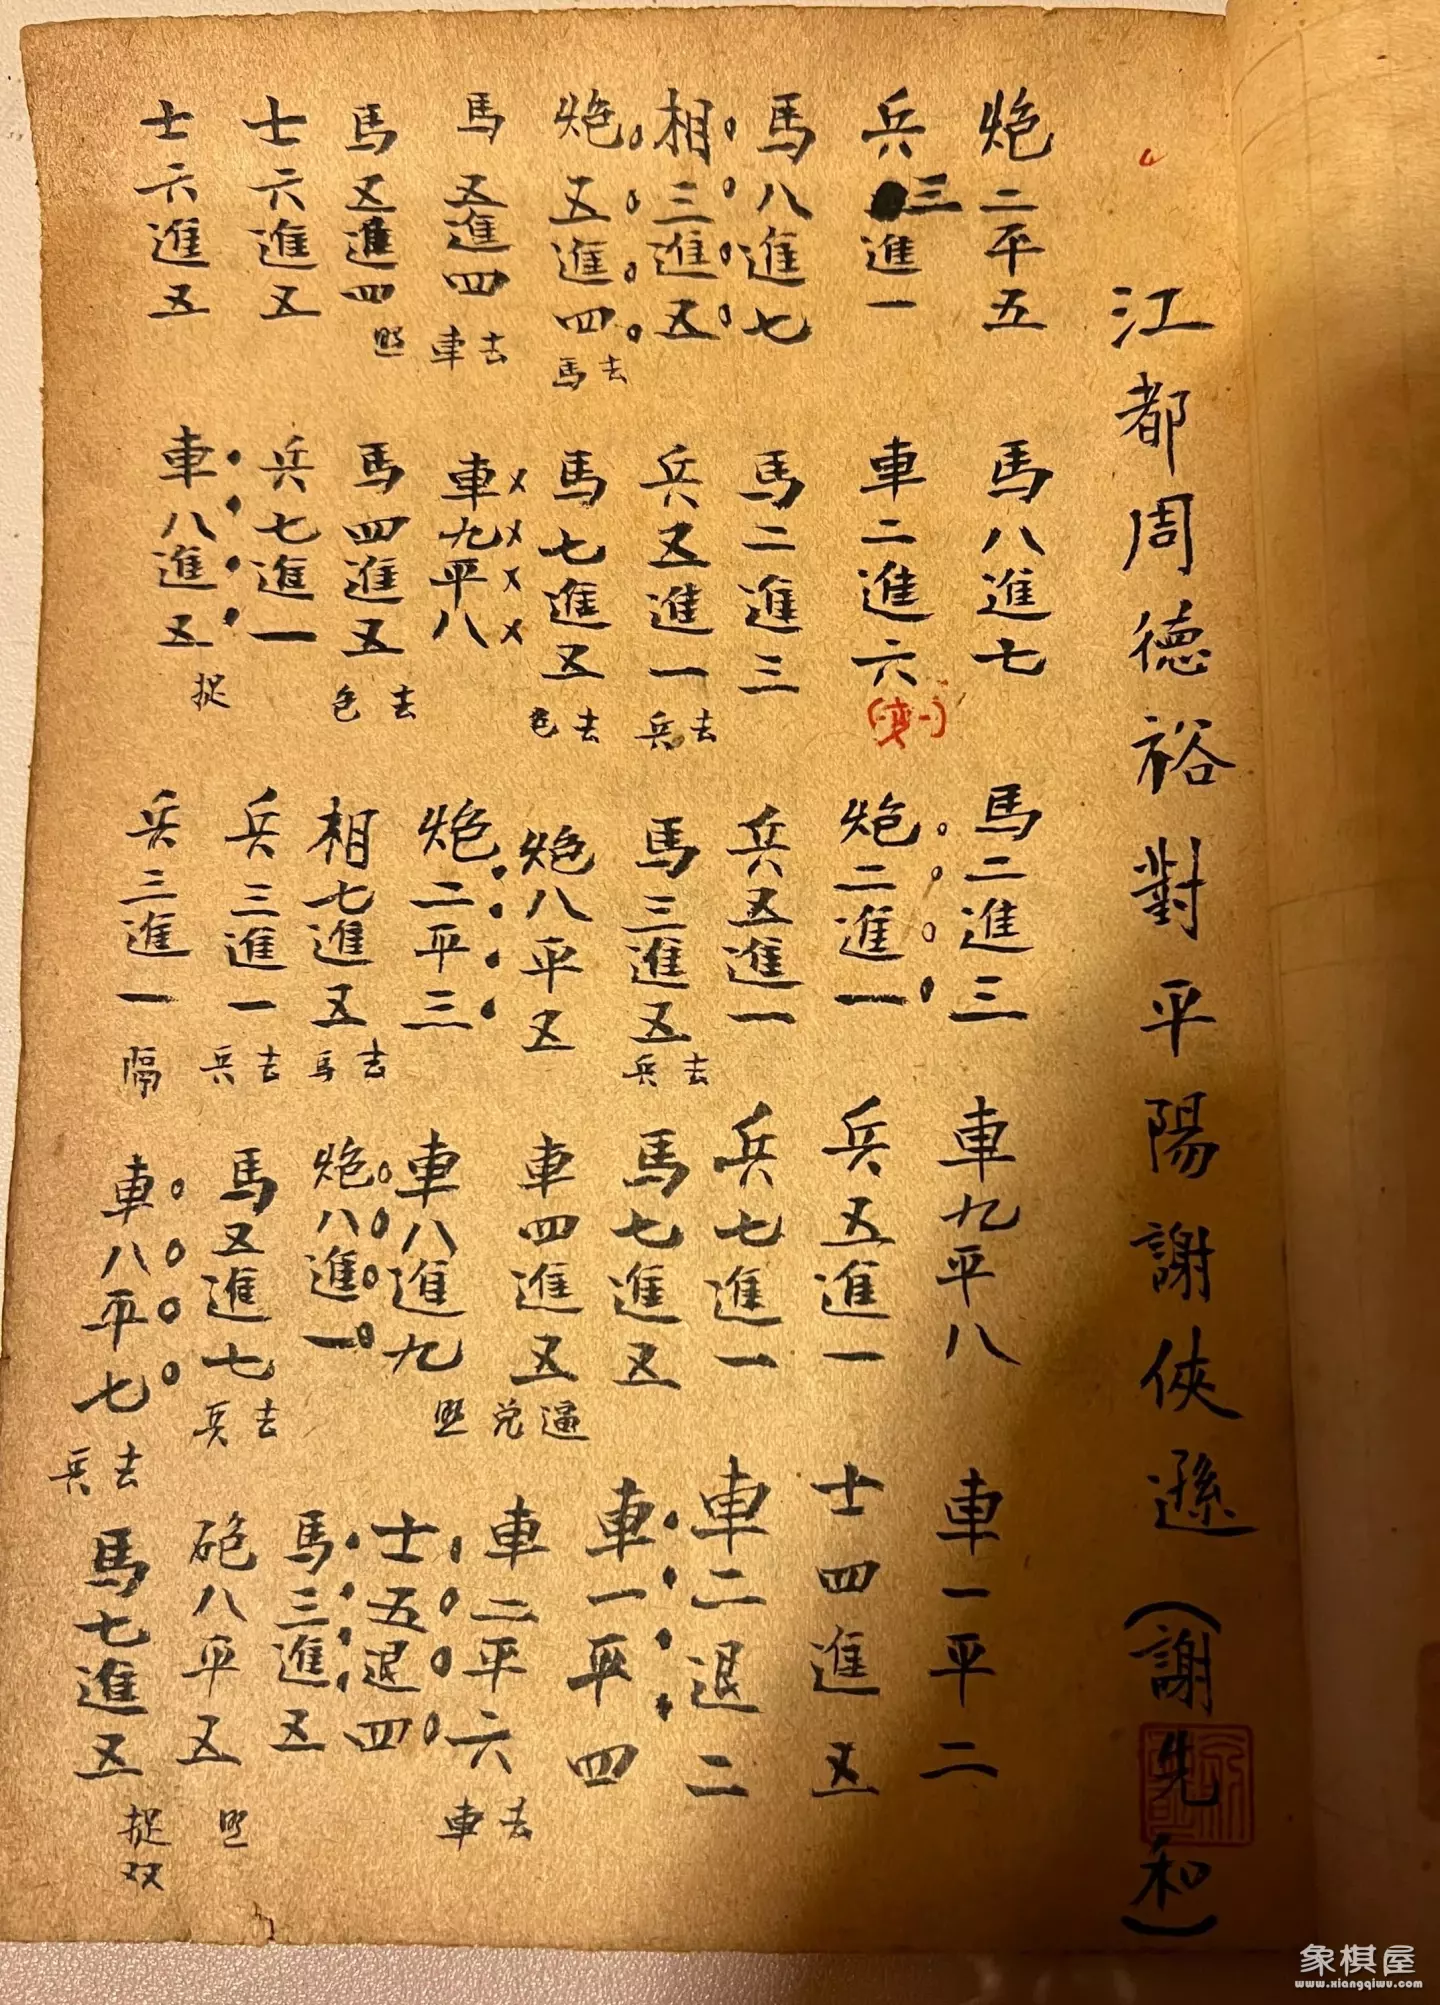 江都周德裕對平陽謝俠遜（謝先和）
炮二平五 馬八進七 馬二進三 車九平八 車一平二
兵三進一 車二進六（一変） 炮二進一 兵五進一 士四進五
馬八進七 馬二進三 兵五進一 兵七進一 車二退二
相三進五 兵五進一去兵 馬三進五去兵 馬七進五 車一平四
炮五進四去馬 馬七進五去炮 炮八平五 車四進五逼兌 車二平六去車
馬五進四去車 車九平八 炮二平三 車八進九照 士五退四
馬五進四照 馬四進五去包 相七進五去馬 炮八進一 馬三進五
士六進五 兵七進一 兵三進一去兵 馬五進七去兵 砲八平五照
士六進五 車八進五捉 兵三進一隔 車八平七去兵 馬七進五捉双
象棋屋
www.xiangqiwu.com